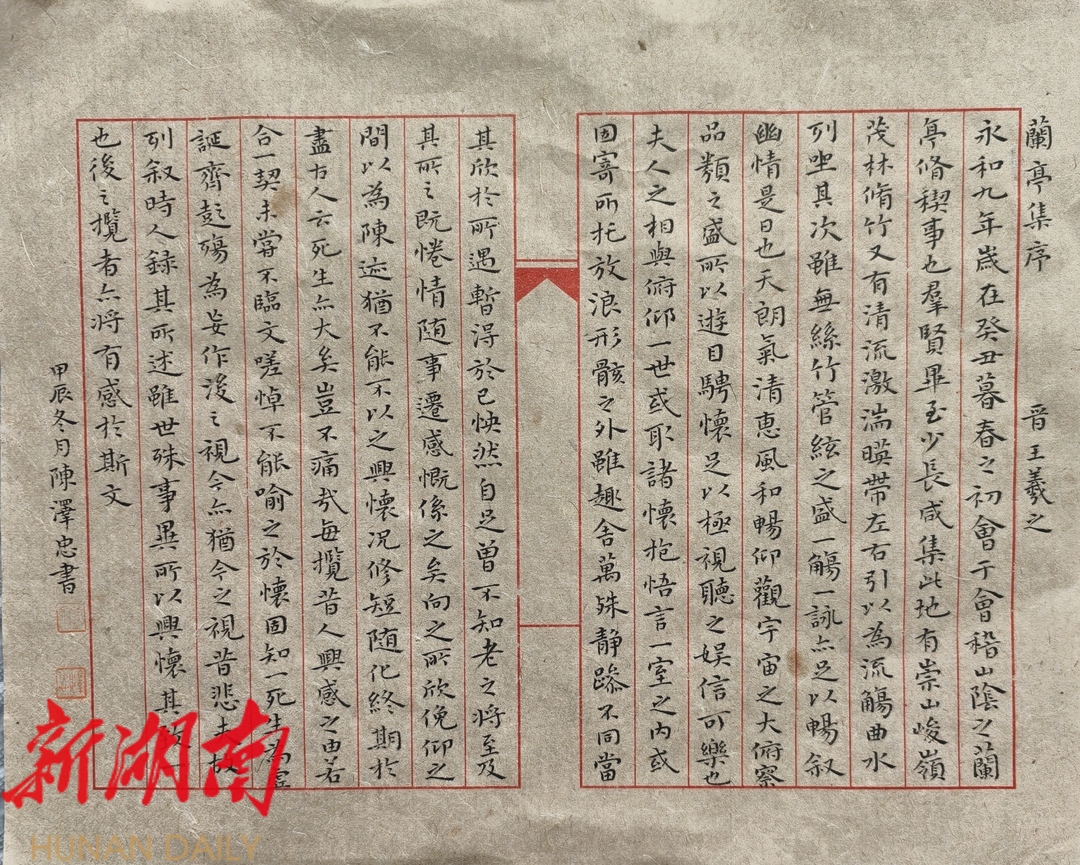 蘭亭集序 晉王羲之
永和九年歲在癸丑暮春之初會于會稽山陰之蘭
亭脩稧事也羣賢畢至少長咸集此地有崇山峻嶺
茂林脩竹又有清流激湍暎帶左右引以為流觴曲水
列坐其次雖無絲竹管絃之盛一觴一詠亦足以暢叙
幽情是日也天朗氣清惠風和暢仰觀宇宙之大俯察
品類之盛所以遊目騁懷足以極視聽之娛信可樂也
夫人之相與俯仰一世或取諸懷抱悟言一室之內或
因寄所托放浪形骸之外雖趣舍萬殊静躁不同當
其欣於所遇暫得於己怏然自足曾不知老之將至及
其所之既惓情随事遷感慨係之矣向之所欣俛仰之
間以為陳迹猶不能不以之興懷况修短随化終期於
盡古人云死生亦大矣豈不痛哉每攬昔人興感之由若
合一契未嘗不臨文嗟悼不能喻之於懷固知一死生為虛
誕齊彭殤為妄作後之視今亦猶今之視昔悲夫故
列叙時人録其所述雖世殊事異所以興懷其致一
也後之攬者亦將有感於斯文
甲辰冬月陳澤忠書
新湖南
HUNAN DAILY